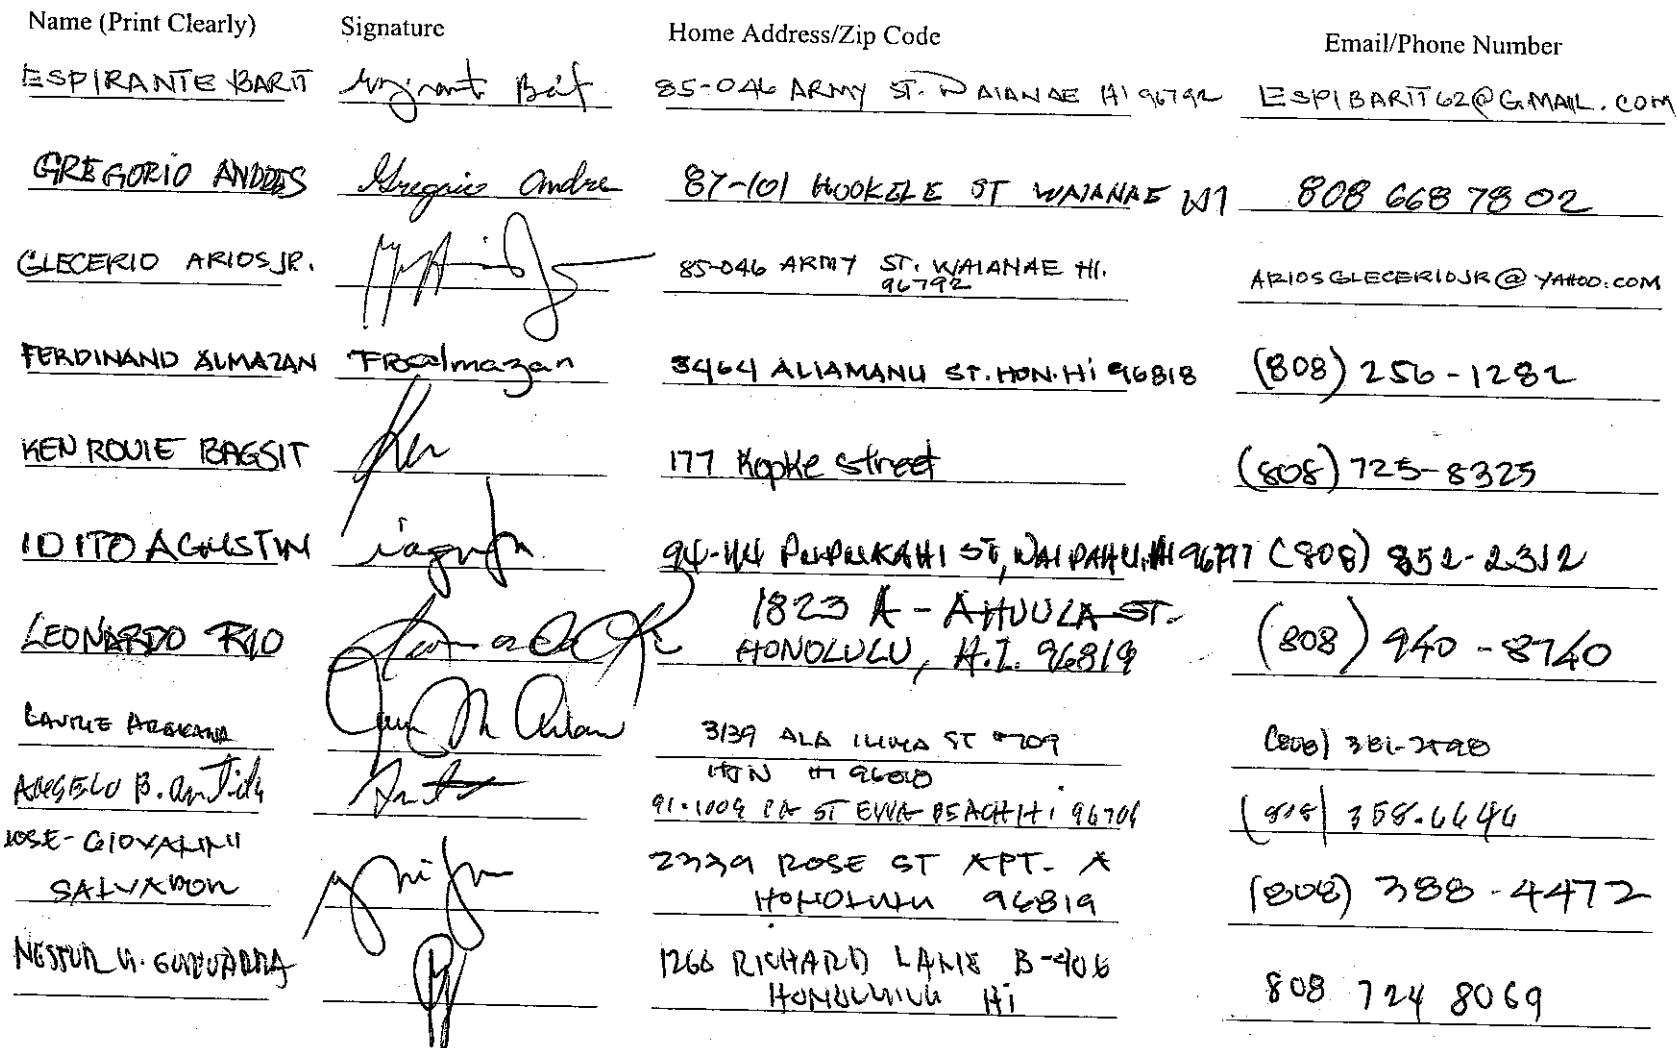 Name (Print Clearly) Signature Home Address/Zip Code Email/Phone Number
ESPIRANTE BARIT 85-046 ARMY ST. WAIANAE HI 96792 ESPIBARIT62@GMAIL.COM
GREGORIO ANDRES Gregorio Andre 87-101 HOOKELE ST WAIANAE HI 808 668 78 02
GLECERIO ARIOS JR. 85-046 ARMY ST. WAIANAE HI.
96792
ARIOSGLECERIOJR@YAHOO.COM
FERDINAND ALMAZAN FBalmazan 3464 ALIAMANU ST. HON. Hi 96818 (808) 256-1282
KEN ROUIE BAGSIT Ken 177 Kopke Street (808) 725-8325
IDITO AGUSTIN 94-114 PUPUKAHI ST, WAIPAHU, HI 96797 (808) 852-2312
LEONARDO RIO 1823 A - AHUULA ST.
HONOLULU, H.I. 96819
(808) 940-8740
LAURIE ARAKAWA 3139 ALA ILIMA ST #709
HON HI
(808)
ANGELO B. 91-1009 ST EWA BEACH HI 96706 (808) 358-6646
JOSE-GIOVANNI
SALVADOR
2339 ROSE ST APT. A
HONOLULU 96819
(808) 388-4472
1266 RICHARD LANE B-406
HONOLULU Hi
808 724 8069